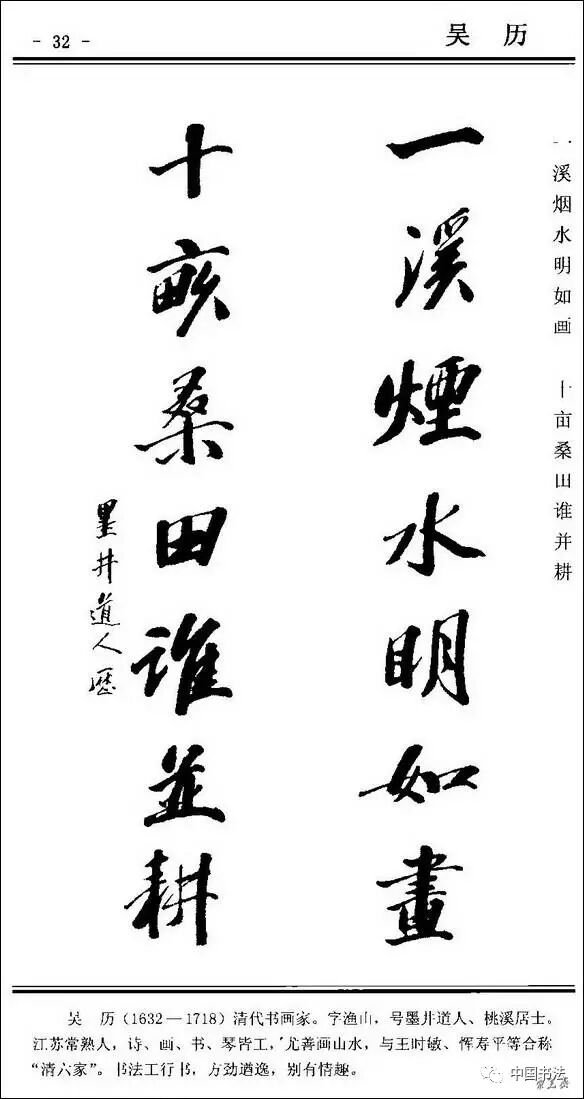 - 32 -
吴 历
一溪烟水明如画 十亩桑田谁并耕
一溪煙水明如畫
十畝桑田誰並耕
墨井道人歷
吴 历（1632—1718）清代书画家。字渔山，号墨井道人、桃溪居士。
江苏常熟人，诗、画、书、琴皆工，尤善画山水，与王时敏、恽寿平等合称
“清六家”。书法工行书，方劲遒逸，别有情趣。
中国书法